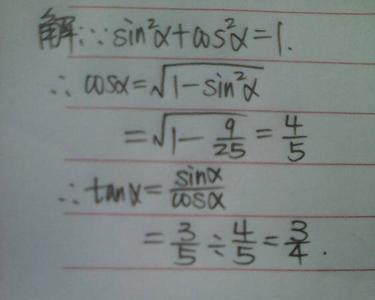 解:∵sin²α+cos²α=1.
∴ cosα=√(1-sin²α)
=√(1-9/25)=4/5
∴tanα=sinα/cosα
=3/5÷4/5=3/4.